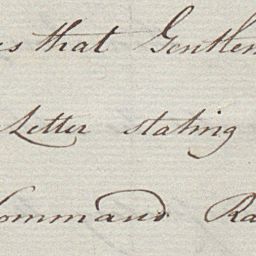 that Gentlem
Letter stating
Command Ra